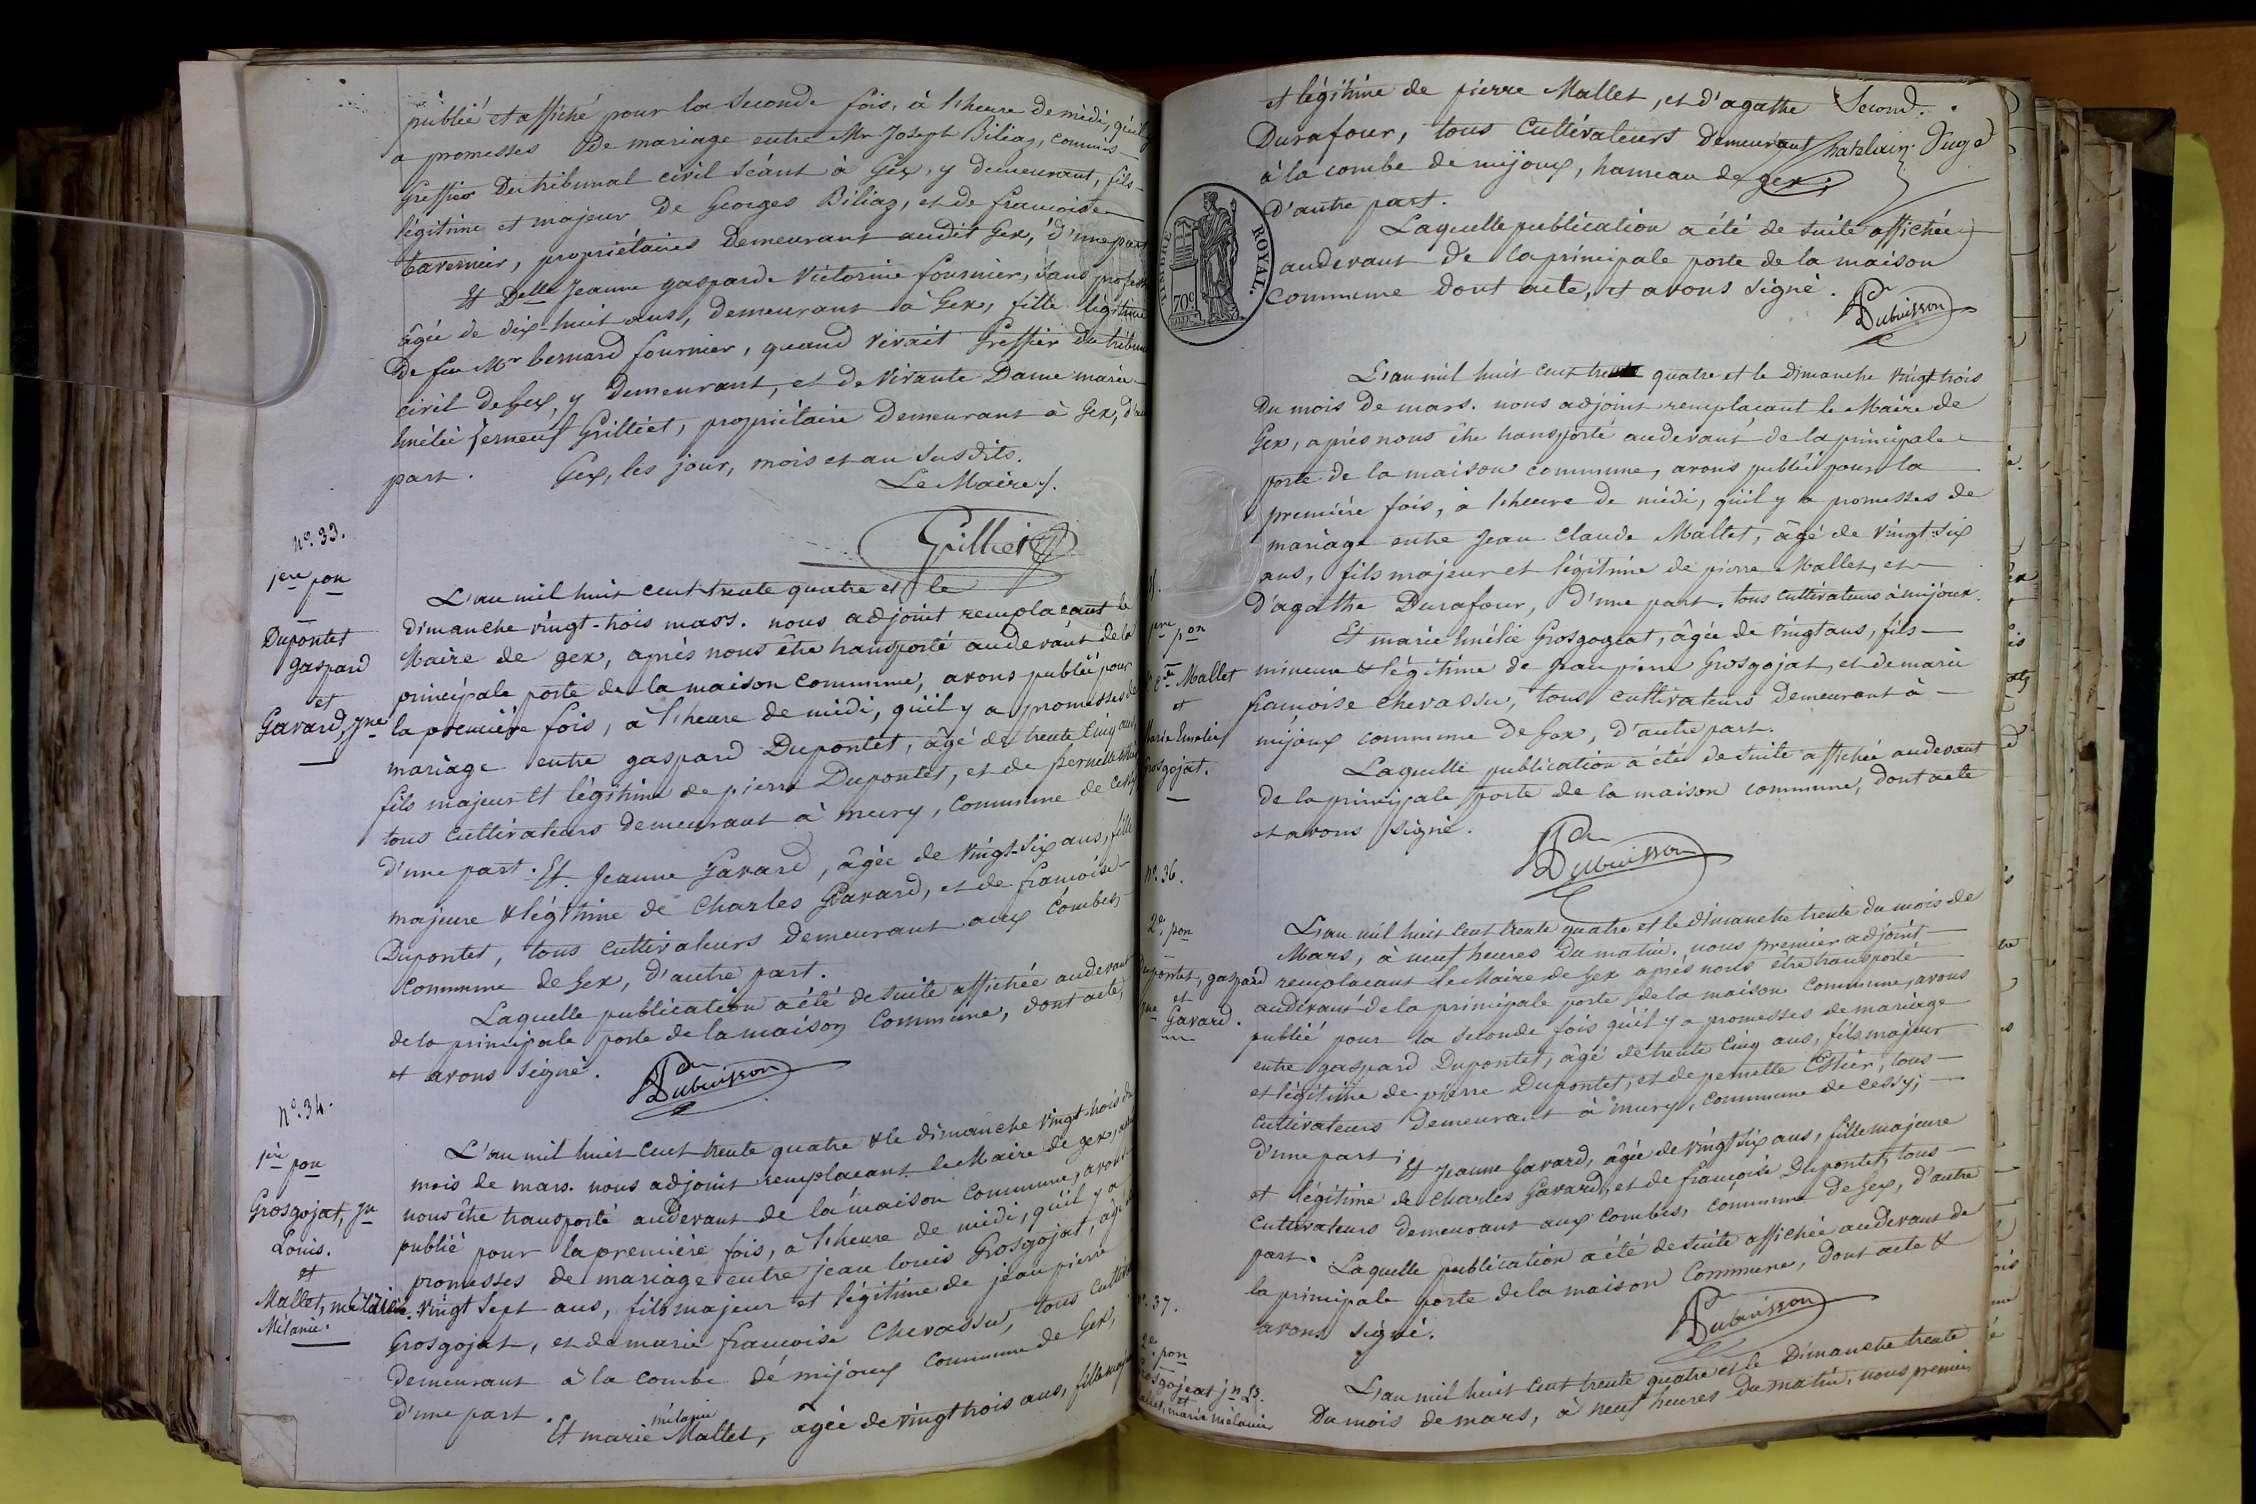 publié et affiché pour la seconde fois, à l'heure de midi, qu'il y
a promesses de mariage entre Mr Joseph Biliaz, commis
Greffier du tribunal civil séant à Gex, y demeurant, fils
légitime et majeur de Georges Biliaz, et de francoise
tavernier, propriétaires demeurant audit Gex, d'une part
Et Delle Jeanne gasparde victorine fournier, sans profession
âgée de dix-huit ans, demeurant à Gex, fille légitime
de feu Mr bernard fournier, quand vivait Greffier du tribunal
civil de Gex, y demeurant, et de vivante Dame marie
Emélie Grilliet, propriétaire demeurant à Gex, d'autre
part. Gex, les jour, mois et an susdits.
Le Maire
Grilliet
no. 33.
1ere pon
Dupontet
gaspard
et
Gavard, jne
L'an mil huit cent trente quatre et le
dimanche vingt-trois mars. nous adjoint remplaçant le
Maire de gex, après nous être transporté audevant de la
principale porte de la maison commune, avons publié pour
la première fois, à l'heure de midi, qu'il y a promesses de
mariage entre gaspard Dupontet, âgé de trente cinq ans,
fils majeur et légitime de pierre Dupontet, et de pernette
tous cultivateurs demeurant à mury, commune de Cessy
d'une part. Et Jeanne Gavard, âgée de vingt-six ans, fille
majeure & légitime de Charles Gavard, et de francoise
Dupontet, tous cultivateurs demeurant aux Combes,
commune de Gex, d'autre part.
Laquelle publication a été de suite affichée audevant
de la principale porte de la maison commune, dont acte,
et avons signé.
Dubuisson
no. 34.
1ere pon
Grosgojat, jn
Louis.
et
Mallet, marie
Mélanie.
L'an mil huit cent trente quatre & le dimanche vingt-trois du
mois de mars. nous adjoint remplacant le Maire de gex, après
nous être transporté audevant de la maison commune, avons
publié pour la première fois, à l'heure de midi, qu'il y a
promesses de mariage entre jean louis Grosgojat, âgé de
vingt sept ans, fils majeur et légitime de jean pierre
Grosgojat, et de marie francoise Chevassu, tous cultiv
demeurant à la combe de mijoux commune de Gex,
d'une part.
Et marie mélanie Mallet, âgée de vingt trois ans, fille majeure
et légitime de pierre Mallet, et d'agathe
Durafour, tous cultivateurs demeurant
à la combe de mijoux, hameau de gex;
d'autre part.
Second.
Chatelain. Juge
ROYAL.
70c
Laquelle publication a été de suite affichée
audevant de la principale porte de la maison
commune dont acte, et avons signé.
Dubuisson
1ere pon
Cde Mallet
et
Marie Emelie
Grosgojat.
L'an mil huit cent trente quatre et le dimanche vingt trois
du mois de mars. nous adjoint remplaçant le Maire de
Gex, après nous être transporté audevant de la principale
porte de la maison commune, avons publié pour la
première fois, à l'heure de midi, qu'il y a promesses de
mariage entre Jean Claude Mallet, âgé de vingt-six
ans, fils majeur et légitime de pierre Mallet, et
d'agathe Durafour, d'une part. tous cultivateurs à mijoux.
Et marie Emélie Grosgogeat, âgée de vingt ans, fils
mineure & légitime de Jean pierre Grosgojat, et de marie
francoise Chevassu, tous cultivateurs demeurant à
mijoux commune de Gex, d'autre part.
Laquelle publication a été de suite affichée audevant
de la principale porte de la maison commune, dont acte
et avons signé.
Dubuisson
no. 36.
2e. pon
Dupontet, gaspard
et
jne Gavard.
L'an mil huit cent trente quatre et le dimanche trente du mois de
Mars, à neuf heures du matin. nous premier adjoint
remplacant le Maire de Gex après nous être transporté
audevant de la principale porte de la maison commune, avons
publié pour la seconde fois qu'il y a promesses de mariage
entre gaspard Dupontet, âgé de trente cinq ans, fils majeur
et légitime de pierre Dupontet, et de pernette Estier, tous
cultivateurs demeurant à mury, commune de Cessy;
d'une part; Et Jeanne Gavard, âgée de vingt six ans, fille majeure
et légitime de Charles Gavard, et de françoise Dupontet, tous
cultivateurs demeurant aux combes, commune de Gex, d'autre
part. Laquelle publication a été de suite affichée audevant de
la principale porte de la maison commune, dont acte &
avons signé.
Dubuisson
no. 37.
2e. pon
Grosgojeat jn Ls.
et
Mallet, marie mélanie
L'an mil huit cent trente quatre et le Dimanche trente
du mois de mars, à neuf heures du matin, nous premier